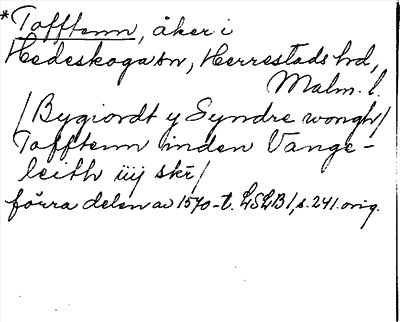 *Tofftenn, åker i
Hedeskoga sn, Herrestads hd,
Malm. l.
/Bygiordt y Syndre wongh/
Tofftenn inden Vange-
leith iiij skr/
förra delen av 1570-t. LSLB 1, s. 241. orig.